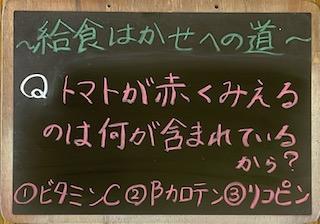 ～給食はかせへの道～
Q トマトが赤くみえる
のは何が含まれている
から？
①ビタミンC ②βカロテン ③リコピン